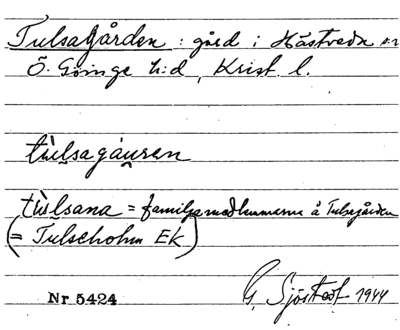 Tulsagården : gård i Hästveda sn
Ö. Göinge h:d, Krist. l.
tùlsagåuren
tùlsana = familjemedlemmarna å Tulsagården
(= Tulseholm Ek)
Nr 5424
G. Sjöstedt 1944